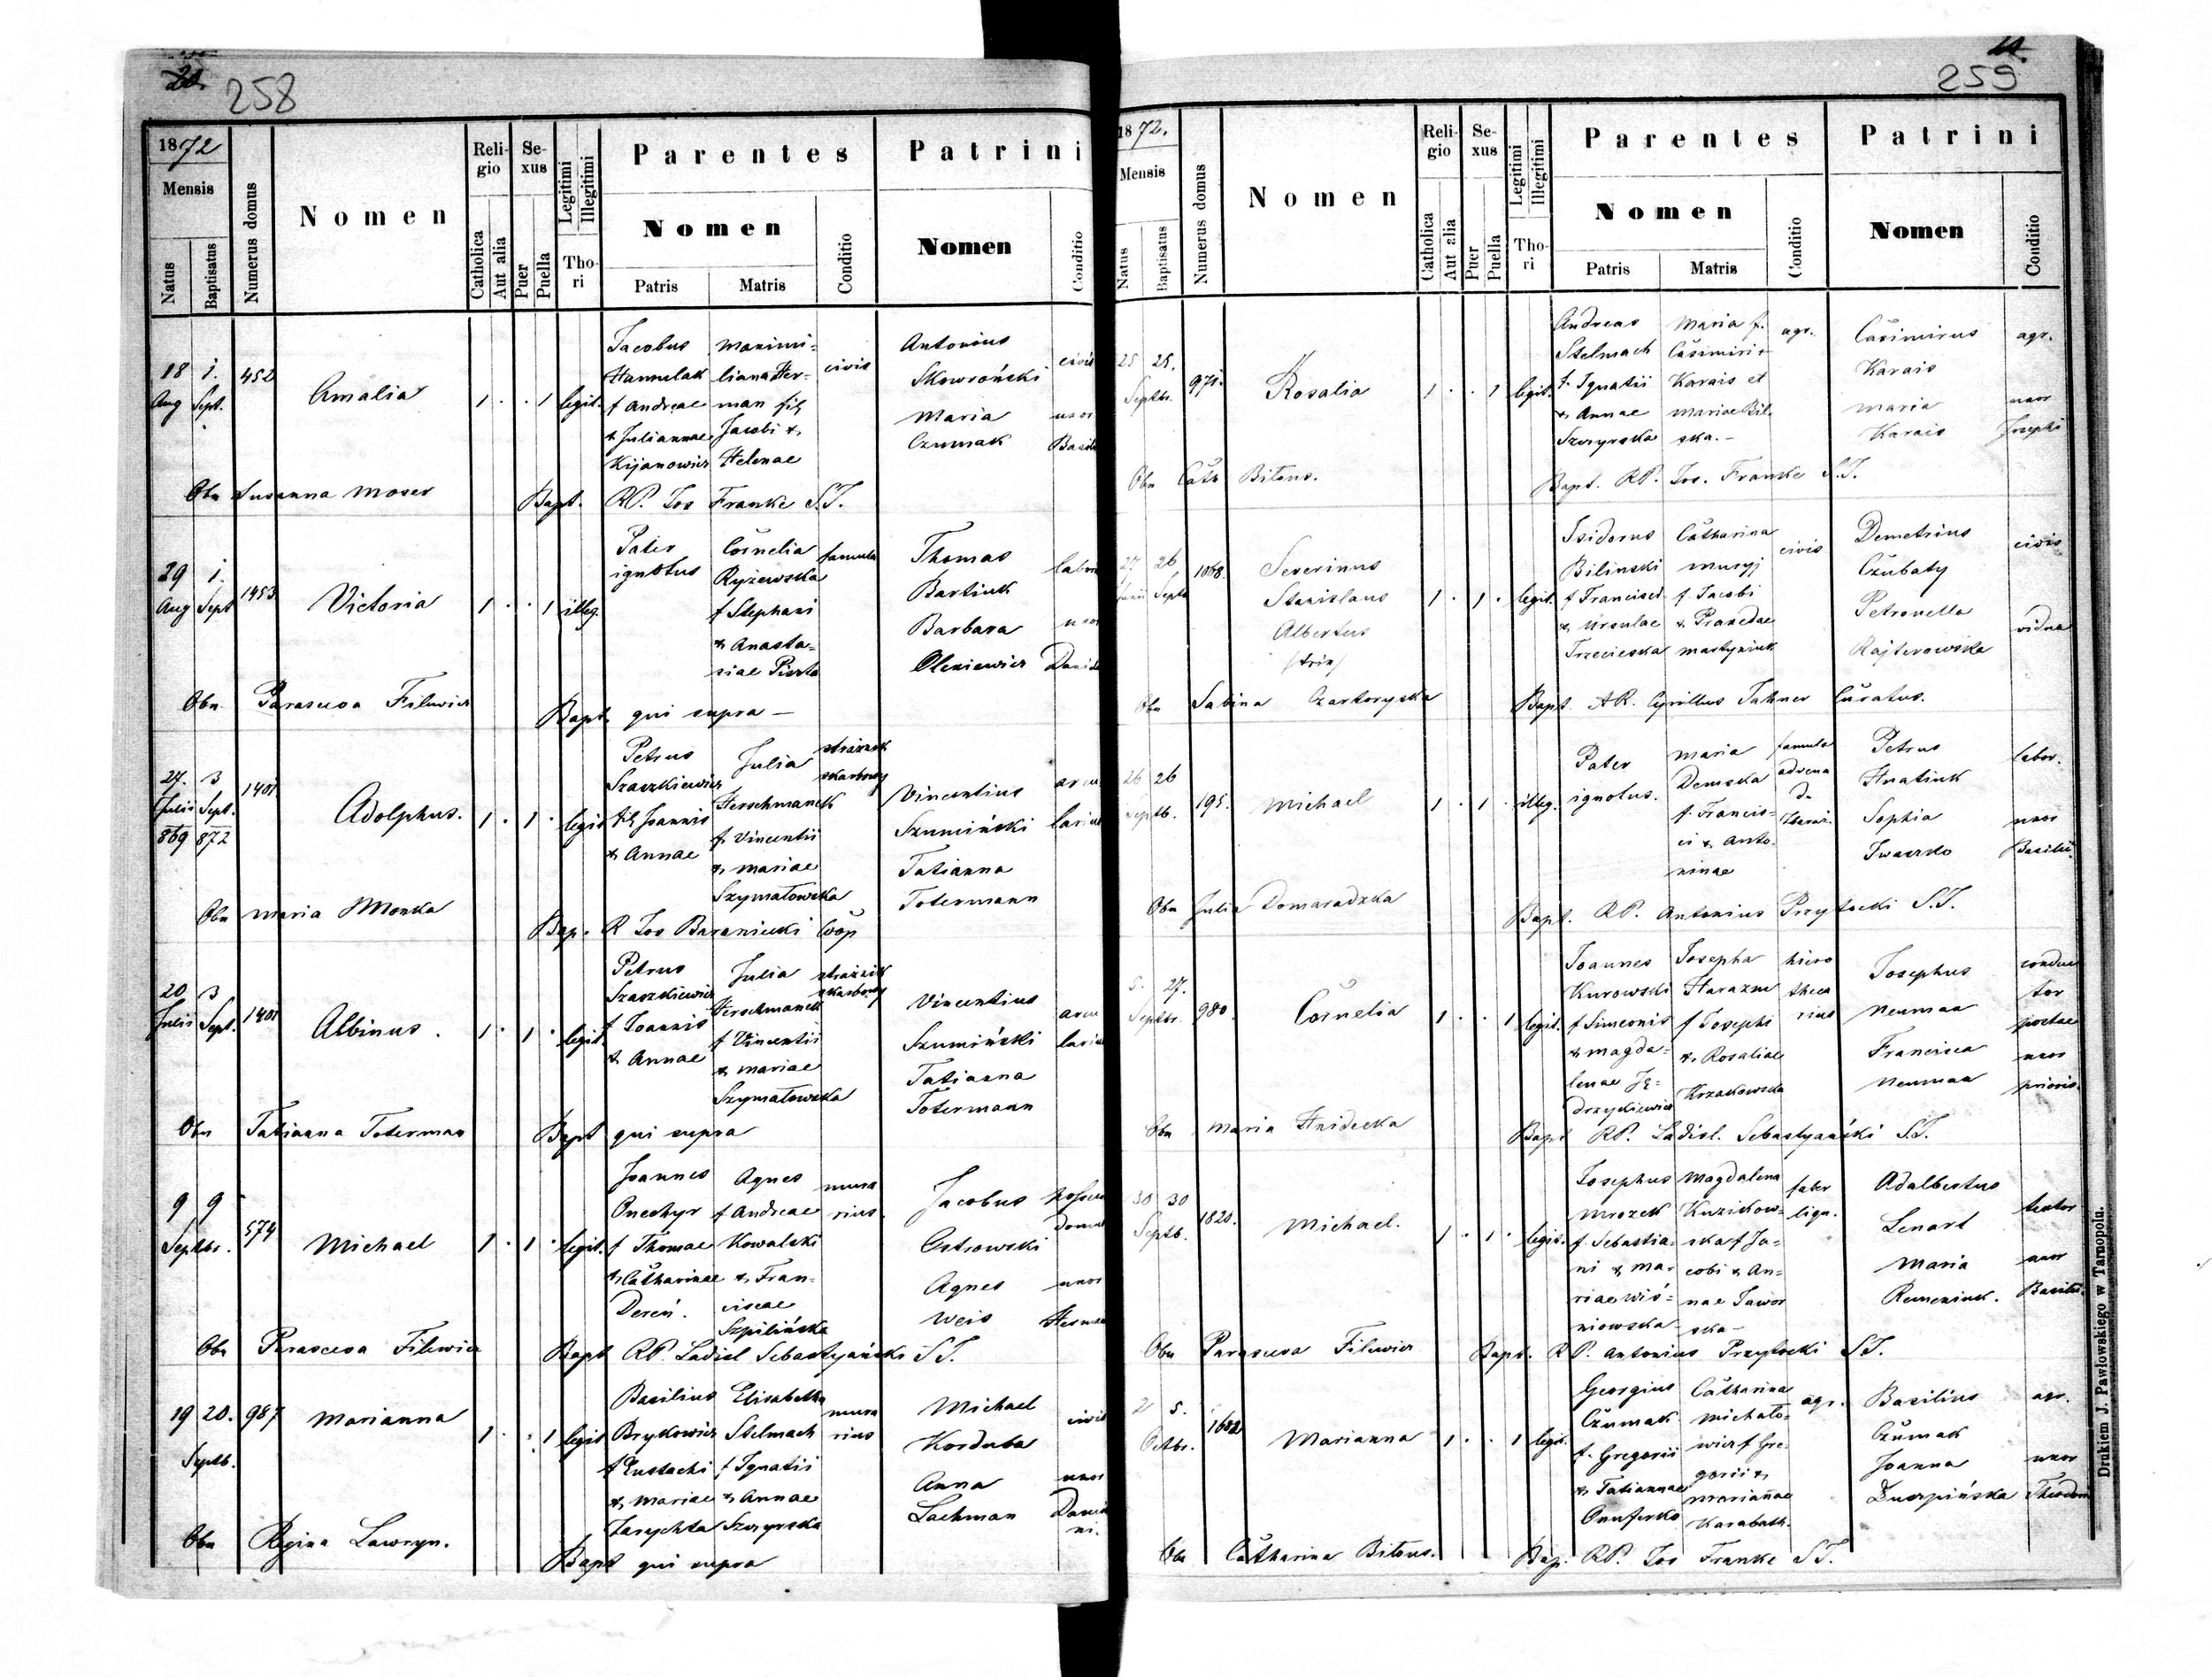 258
1872
Mensis
Natus
Baptisatus
Numerus domus
Nomen
Religio
Catholica
Aut alia
Sexus
Puer
Puella
Legitimi
Illegitimi
Thori
Parentes
Nomen
Patris
Matris
Conditio
Patrini
Nomen
Conditio
18 Aug
1. Sept.
452
Amalia
1 . . 1 legit.
Jacobus
Hamulak
f Andreae
& Juliannae
Kijanowicz
Maximi=
liana Her=
man fil
Jacobi &
Helenae
civis
Antonius
Skowroński
Maria
Czumak
civis
uxor
Obs Susanna Moser
Bapt. RP. Jos Franke S.J.
29 Aug
1. Sept
1453
Victoria
1 . . 1 illeg.
Pater
ignotus
Cornelia
Ryżewska
f Stephani
& Anasta=
siae
famula
Thomas
Bartiuk
Barbara
Oleniewicz
Obs Parasceva Filewicz
Bapt. qui supra —
27. Julii 869
3 Sept. 872
1401
Adolphus.
1 . 1 . legit
Petrus
Szaszkiewicz
Joannis
& Annae
Julia
Herschmanek
f Vincentii
& Mariae
Szymatowska
strażnik
skarbowy
Vincentius
Szumiński
Tatianna
Totermann
Obs Maria Monka
Bap. R Jos Baraniecki Coop
20 Julii
3 Sept.
1401
Albinus.
1 . 1 . legit.
Petrus
Szaszkiewicz
f Joannis
& Annae
Julia
Herschmanek
f Vincentii
& Mariae
Szymatowska
strażnik
skarbowy
Vincentius
Szumiński
Tatianna
Totermann
Obs Tatianna Toterman
Bapt qui supra
9 9
Septbr.
574
Michael
1 . 1 . legit.
Joannes
Onechyr
f Thomae
& Catharinae
Dereń.
Agnes
f Andreae
Kowalski
& Fran=
ciscae
Szpilińska
mura
rius
Jacobus
Ostrowski
Agnes
Weis
uxor
Obs Parasceva Filewicz
Bapt RP. Ladisl Sebastyański S.J.
19 20.
Septb.
987
Marianna
1 . . 1 legit
Basilius
Brykowicz
f Eustachi
& Mariae
Zarychta
Elisabetha
Stelmach
f Ignatii
& Annae
Szczyrska
mura
rius
Michael
Korduba
Anna
Lachman
civis
uxor
Obs Regina Lawryn.
Bapt qui supra
259
1872.
Mensis
Natus
Baptisatus
Numerus domus
Nomen
Religio
Catholica
Aut alia
Sexus
Puer
Puella
Legitimi
Illegitimi
Thori
Parentes
Nomen
Patris
Matris
Conditio
Patrini
Nomen
Conditio
25 25.
Septbr.
971.
Rosalia
1 . . 1 legit.
Andreas
Stelmach
f. Ignatii
& Annae
Szczyrska
Maria f.
Casimiri
Karais et
Mariae Bil
ska. —
agr.
Casimirus
Karais
Maria
Karais
agr.
uxor
Josephi
Obs Cath Bitous.
Bapt. RP. Jos. Franke S.J.
27 26
Sept
1068.
Severinus
Stanislaus
Albertus
1 . 1 . legit.
Isidorus
Bilinski
f Francisci
& Ursulae
Trzecieska
Catharina
Musyj
f. Jacobi
& Praxedae
Martyniuk
civis
Demetrius
Czubaty
Petronella
Rajterowska
civis
vidua
Obs Sabina Czartoryska
Bapt. AR. Cyrillus Tahner Curatus.
26 26
Septb.
195.
Michael
1 . 1 . illeg.
Pater
ignotus.
Maria
Demska
f. Francis=
ci & Anto=
ninae
famula
advena
de
Petrus
Hnatiuk
Sophia
Iwaszko
labor.
uxor
Basilii.
Obs Julia Domaradzka
Bapt. RP. Antonius Przytocki S.J.
5. 27.
Septbr.
980.
Cornelia
1 . . 1 legit.
Joannes
Kurowski
f Simeonis
& Magda=
lenae Ję=
drzykiewicz
Josepha
Harazm
f Josephi
& Rosaliae
Krzakowska
hipo
theca
rius
Josephus
Neuman
Francisca
Neuman
conduc
tor
uxor
prioris.
Obs Maria Hnidecka
Bapt RP. Ladisl. Sebastyański S.J.
30 30
Septb.
1820.
Michael.
1 . 1 . legit.
Josephus
Mrozek
f. Sebastia=
ni & Ma=
riae Wiś=
niowska
Magdalena
Kuzikow=
ska f Ja=
cobi & An=
nae Jawor
ska —
faber
lign.
Adalbertus
Lenart
Maria
Remeniuk.
uxor
Basilii.
Obs Parasceva Filewicz
Bapt. RP. Antonius Przytocki S.J.
2 5.
Octbr.
Marianna
1 . . 1 legit.
Georgius
Czumak
f. Gregorii
& Tatiannae
Onuferko
Catharina
Michało=
wicz f Gre=
gorii &
Mariannae
Karabath.
agr.
Basilius
Czumak
Joanna
agr.
uxor
Obs Catharina Bitous.
Bap. RP. Jos Franke S.J.
Drukiem J. Pawłowskiego w Tarnopolu.